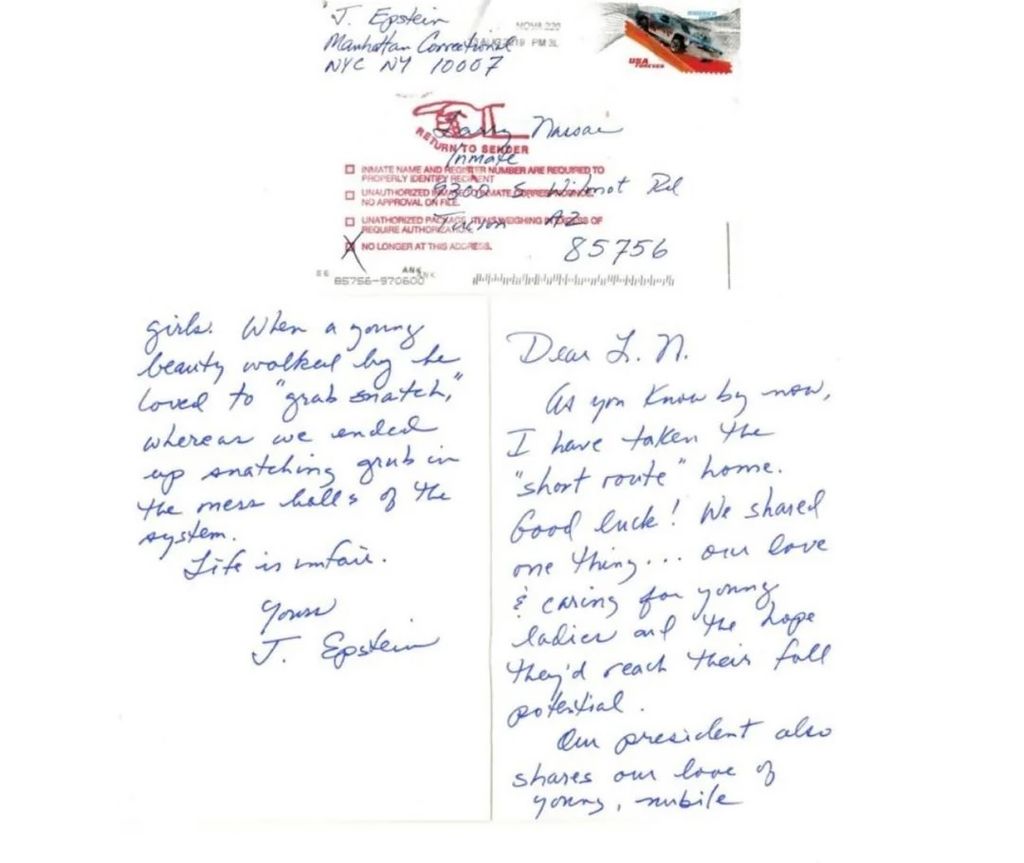 J. Epstein
Manhattan Correctional
NYC NY 10007
NOVA 220
AUG 2019 PM 3 L
AMERICA
USA
FOREVER
RETURN TO SENDER
Larry Nassar
Inmate
9300 S. Wilmot Rd
Tucson AZ
85756
INMATE NAME AND REGISTER NUMBER ARE REQUIRED TO
PROPERLY IDENTIFY RECIPIENT
UNAUTHORIZED INMATE TO INMATE CORRESPONDENCE.
NO APPROVAL ON FILE.
UNATHORIZED PACKAGE, ITEMS WEIGHING IN EXCESS OF
REQUIRE AUTHORIZATION.
X NO LONGER AT THIS ADDRESS.
ANK
85756-970600
Dear L. N.
As you know by now,
I have taken the
"short route" home.
Good luck! We shared
one thing... our love
& caring for young
ladies and the hope
they'd reach their full
potential.
Our president also
shares our love of
young, nubile
girls. When a young
beauty walked by he
loved to "grab snatch,"
whereas we ended
up snatching grub in
the mess halls of the
system.
Life is unfair.
Yours
J. Epstein